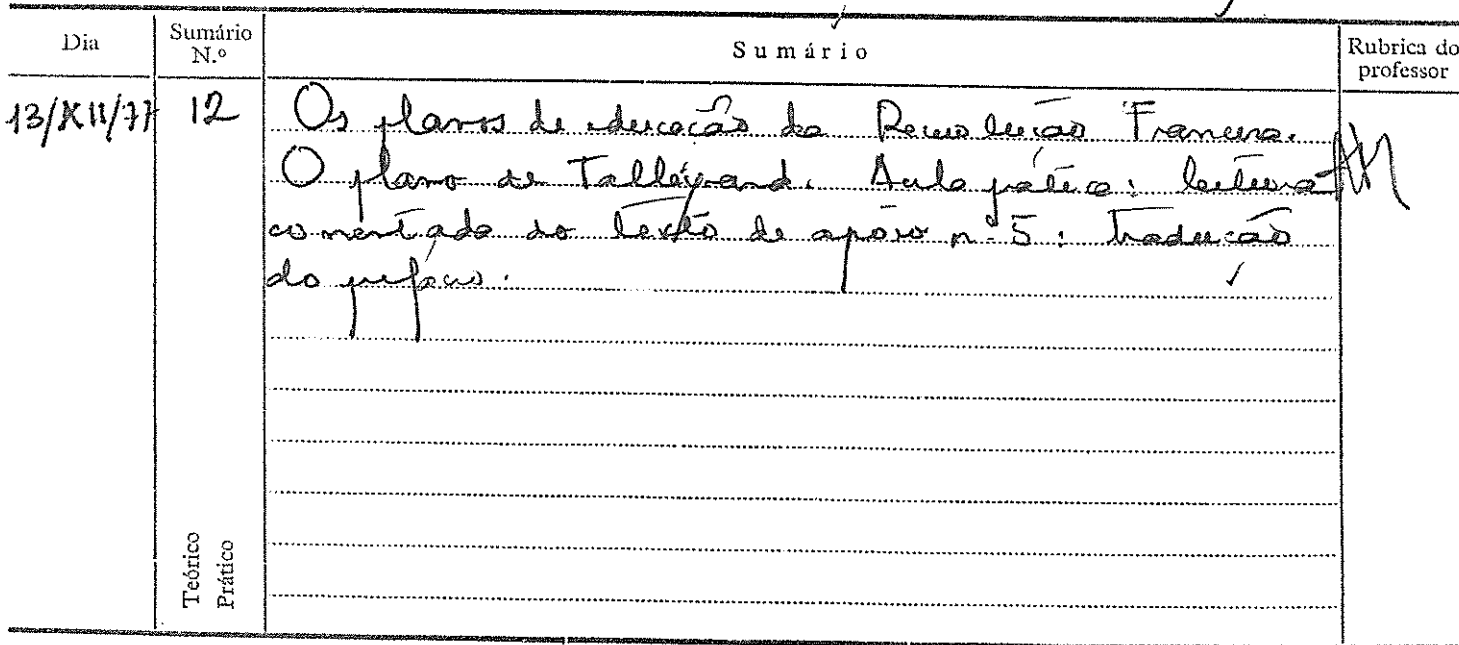 Dia
Sumário N.º
Sumário
Rubrica do professor
13/XII/77
12
Os planos de educação da Revolução Francesa.
O plano de Talleyrand. Aula prática: leitura
comentada do texto de apoio nº 5: tradução
do prefácio.
Teórico
Prático